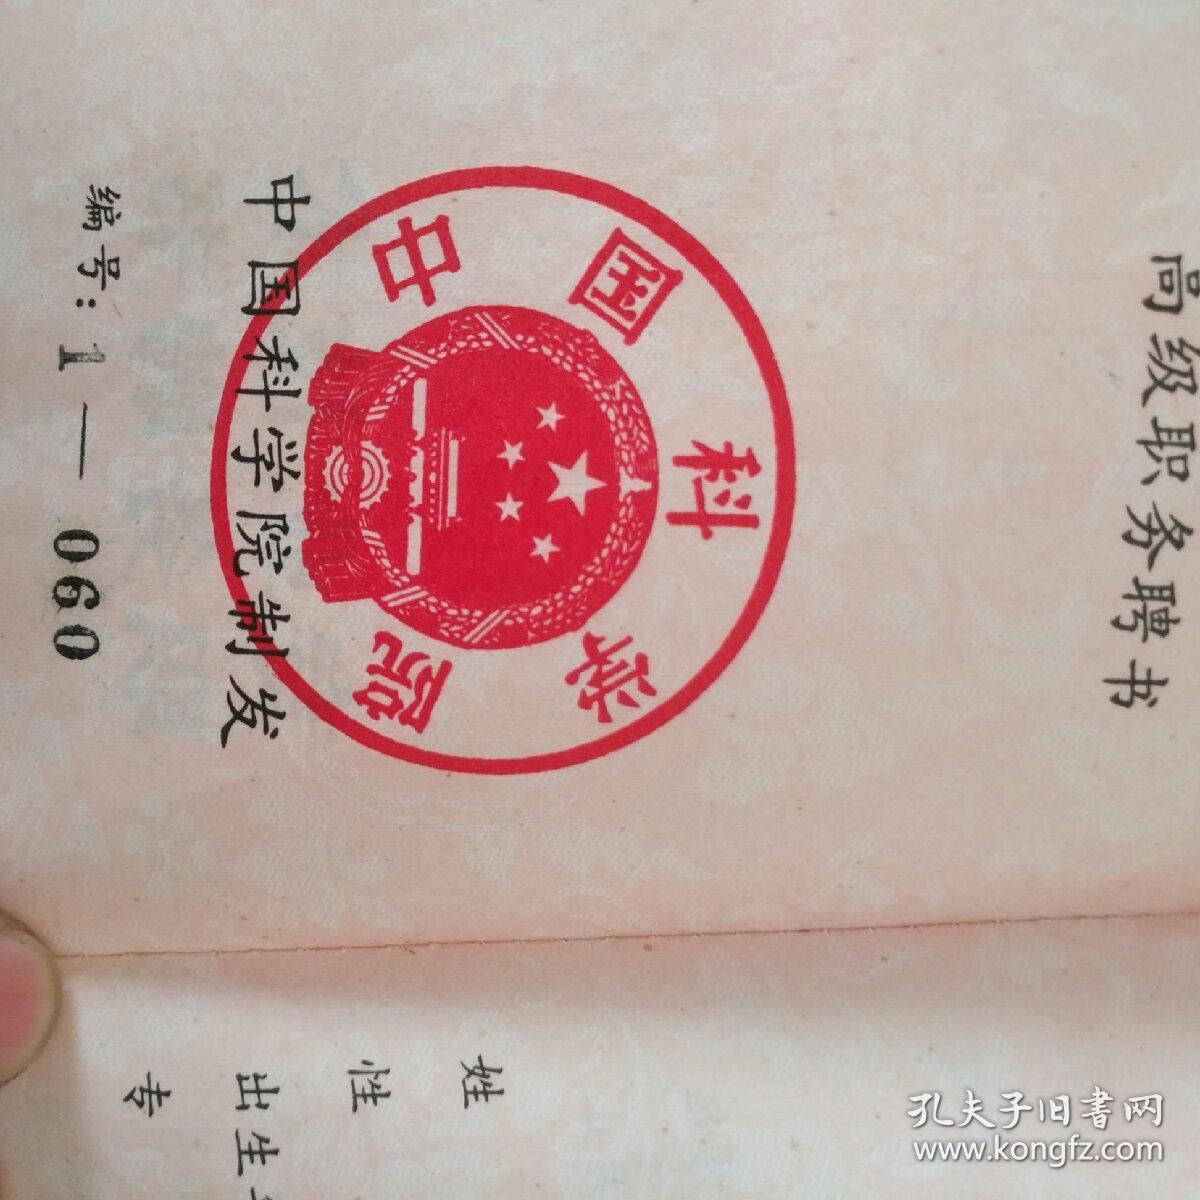 高级职务聘书
中国科学院
中国科学院制发
编号:1—060
姓
性
出生
专
孔夫子旧书网
www.kongfz.com